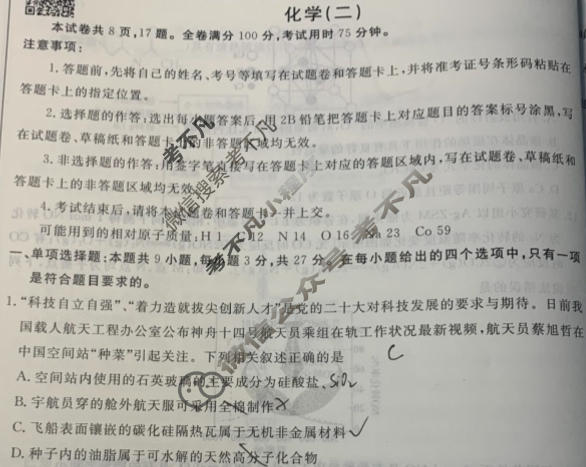 化学(二)
本试卷共8页,17题。全卷满分100分,考试用时75分钟。
注意事项:
1.答题前,先将自己的姓名、考号等填写在试题卷和答题卡上,并将准考证号条形码粘贴在
答题卡上的指定位置。
2.选择题的作答:选出每小题答案后,用2B铅笔把答题卡上对应题目的答案标号涂黑,写
在试题卷、草稿纸和答题卡上的非答题区域均无效。
3.非选择题的作答:用签字笔直接写在答题卡上对应的答题区域内,写在试题卷、草稿纸和
答题卡上的非答题区域均无效。
4.考试结束后,请将本试题卷和答题卡一并上交。
可能用到的相对原子质量:H 1 12 N 14 O 16 23 Co 59
一、单项选择题:本题共9小题,每小题3分,共27分。在每小题给出的四个选项中,只有一项
是符合题目要求的。
1.“科技自立自强”、“着力造就拔尖创新人才”是党的二十大对科技发展的要求与期待。日前我
国载人航天工程办公室公布神舟十四号航天员乘组在轨工作状况最新视频,航天员蔡旭哲在
中国空间站“种菜”引起关注。下列相关叙述正确的是 C
A.空间站内使用的石英玻璃的主要成分为硅酸盐 SiO₂
B.宇航员穿的舱外航天服可采用全棉制作 ×
C.飞船表面镶嵌的碳化硅隔热瓦属于无机非金属材料 ✓
D.种子内的油脂属于可水解的天然高分子化合物
考不凡
微信搜索考不凡
小程序
微信公众号考不凡